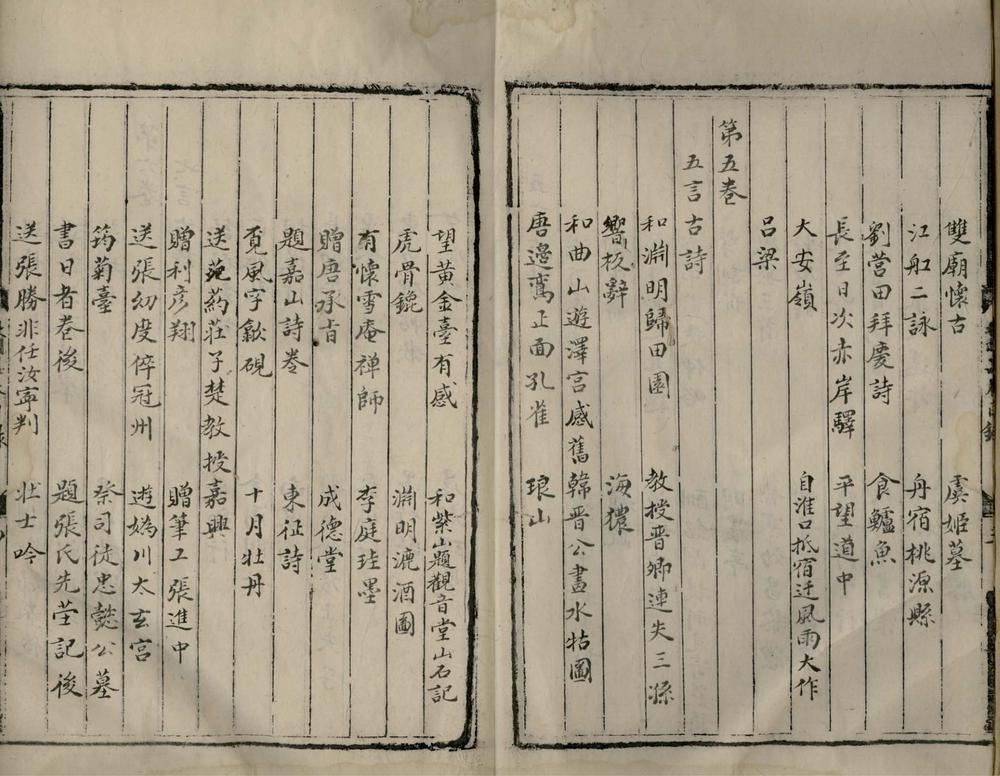 雙廟懷古 虞姬墓
江舡二詠 舟宿桃源縣
劉營田拜慶詩 食鱸魚
長至日次赤岸驛 平望道中
大安嶺 自淮口抵宿迁風雨大作
吕梁
第五卷
五言古詩
和淵明歸田園 教授晋卿連失三孫
響板辭 海獚
和曲山遊澤宫感舊 韓晋公畫水牯圖
唐邊鸞正面孔雀 琅山
望黄金臺有感 和紫山題觀音堂山石記
虎骨鎞 淵明漉酒圖
有懷雪庵禅師 李庭珪墨
贈唐承旨 成德堂
題嘉山詩卷 東征詩
覔風字歙硯 十月牡丹
送范葯莊子楚教授嘉興
贈利彦翔 贈筆工張進中
送張幼度倅冠州 遊媯川太玄宫
筠菊臺 祭司徒忠懿公墓
書日者卷後 題張氏先茔記後
送張勝非任汝寜判 壮士吟